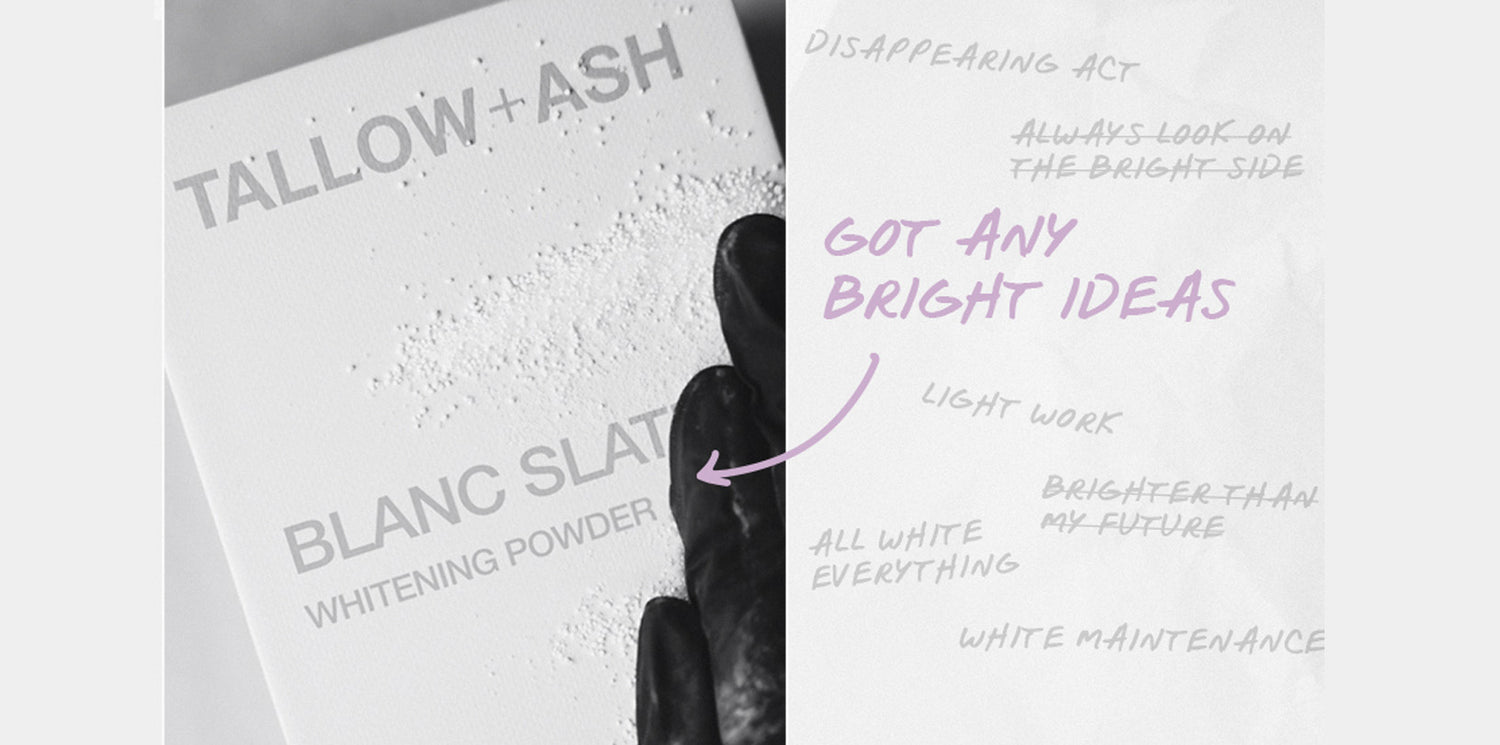 TALLOW+ASH
BLANC SLAT
WHITENING POWDER
DISAPPEARING ACT
ALWAYS LOOK ON
THE BRIGHT SIDE
GOT ANY
BRIGHT IDEAS
LIGHT WORK
BRIGHTER THAN
MY FUTURE
ALL WHITE
EVERYTHING
WHITE MAINTENANCE